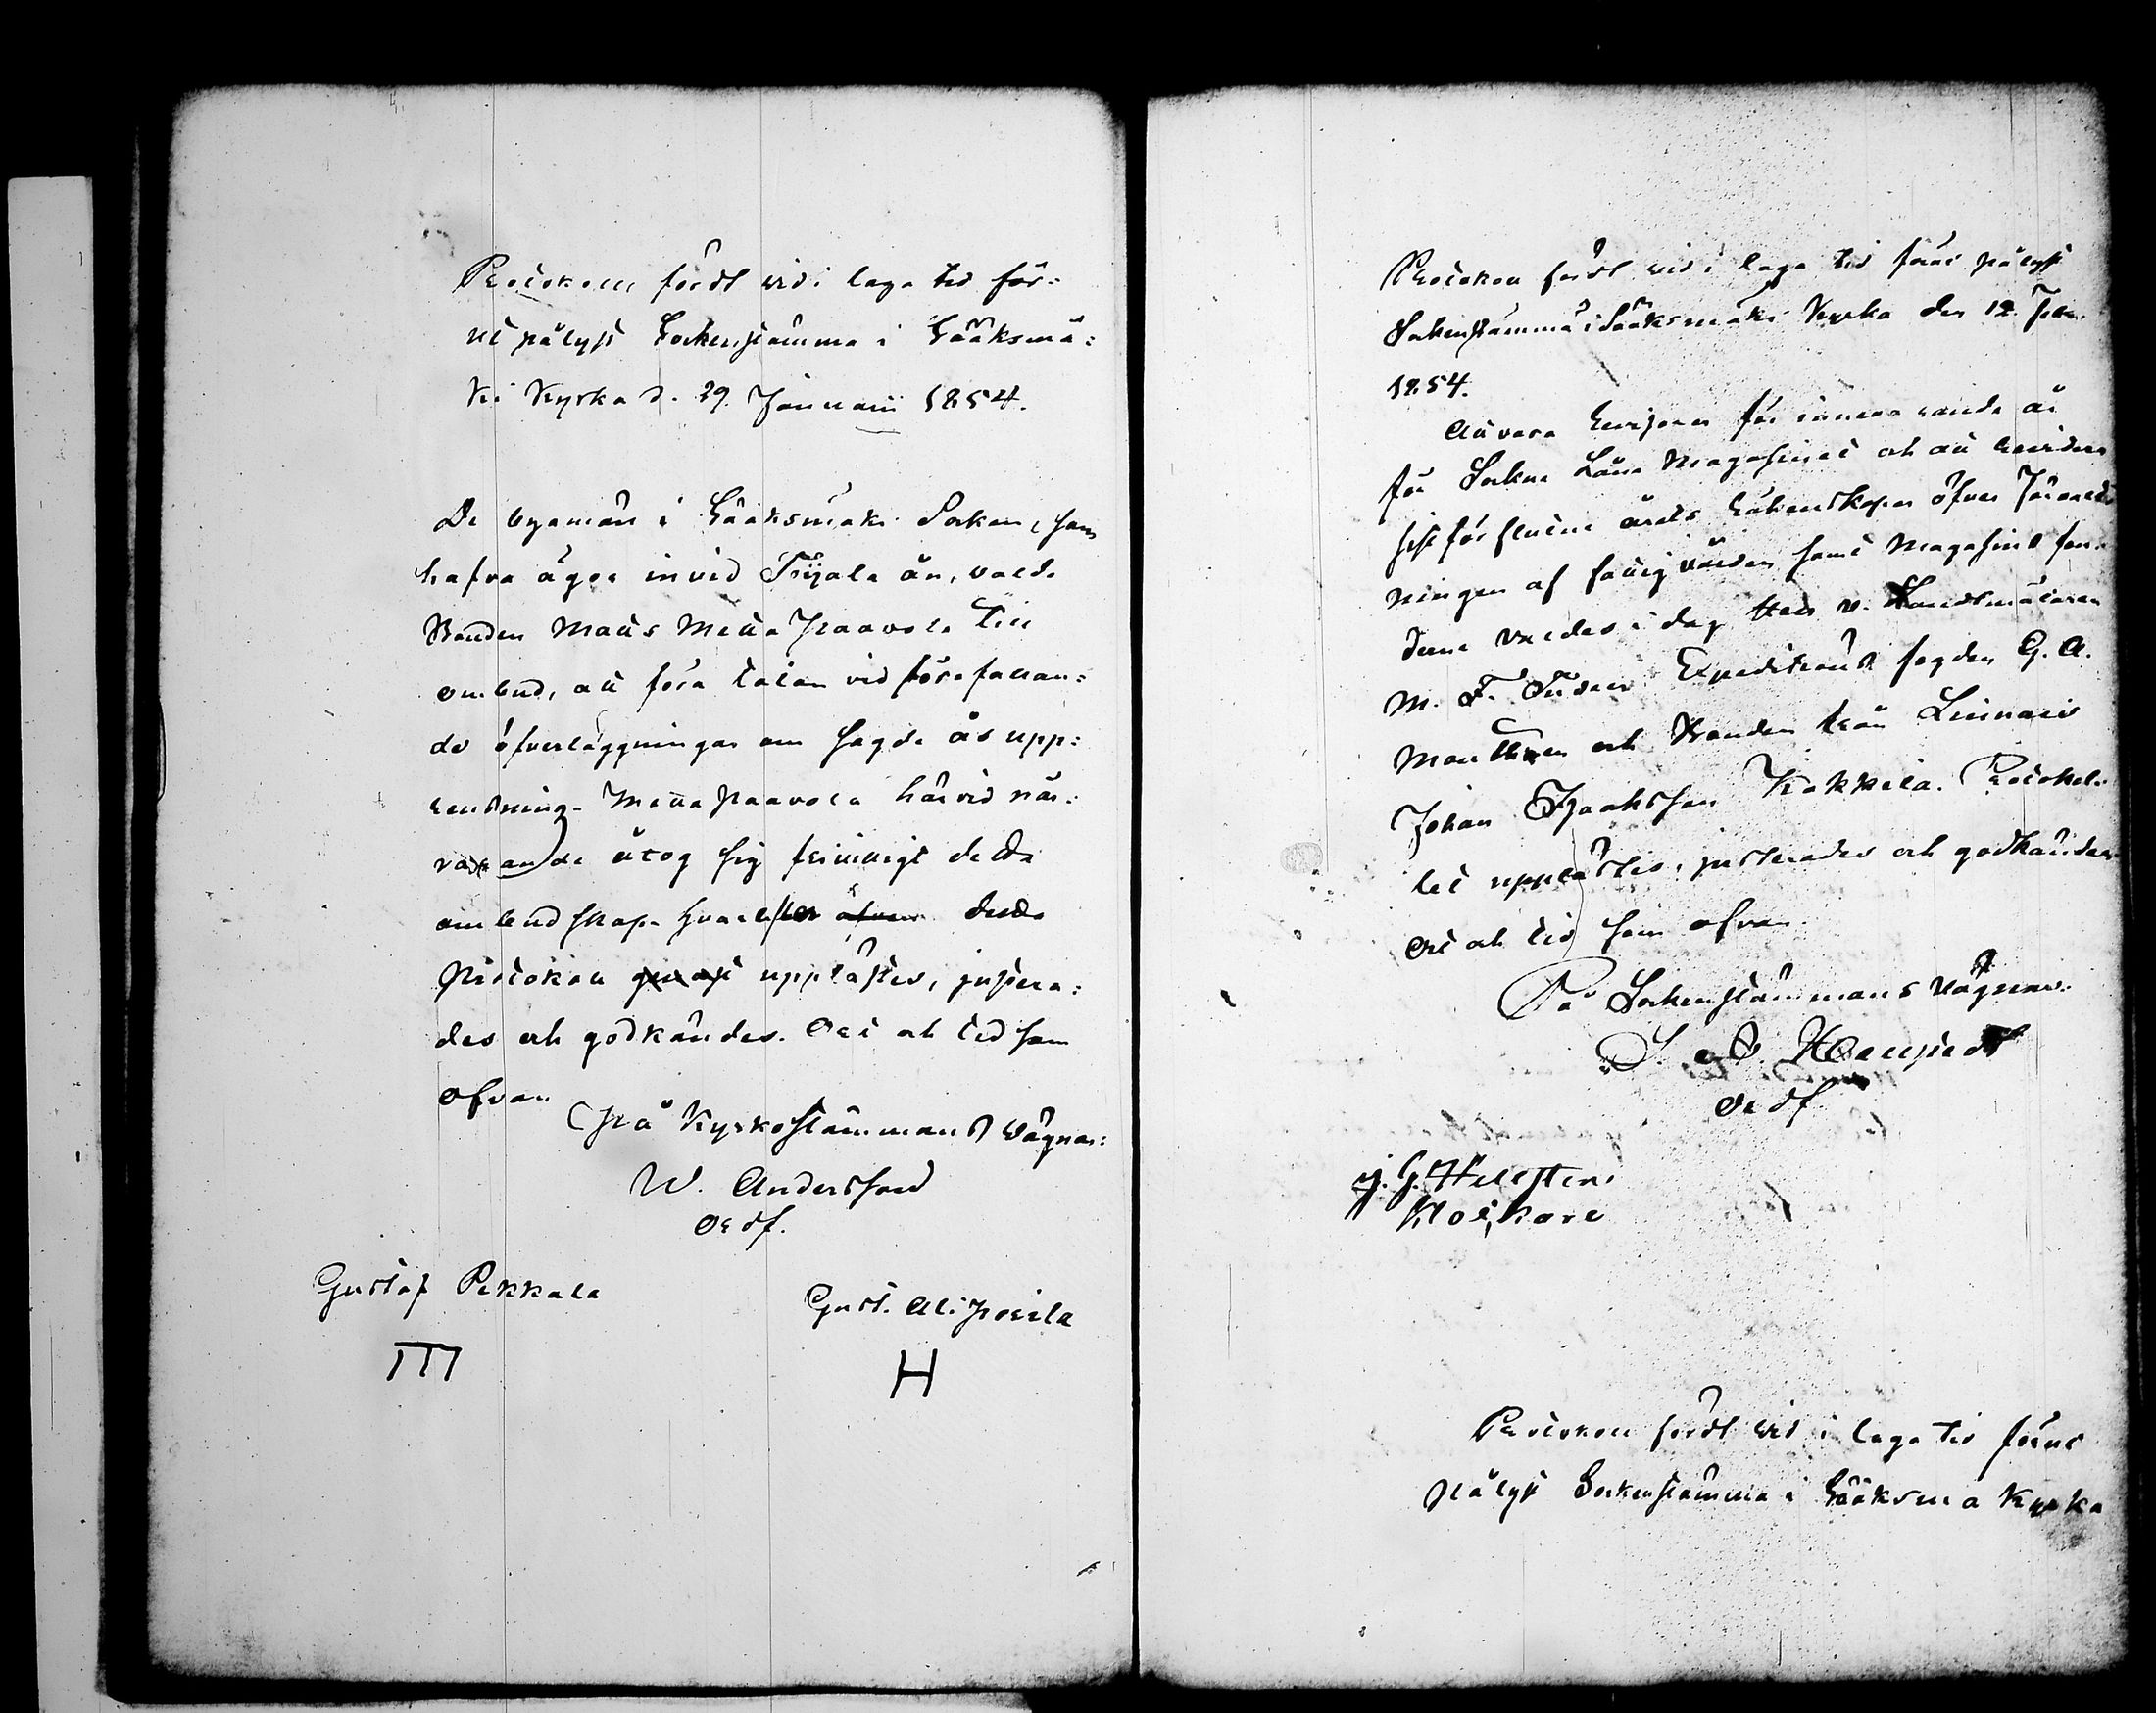 Protokoll fördt vid i laga tid för-
ut pålyst Sockenstämma i Sääksmä-
ki Kyrka d. 29 Januarii 1854.
De byamän i Sääksmäki Socken, som
hafva ägor invid Tarjala ån, valde
Bonden Matts Metta Paavola till
ombud, att föra talan vid förefallan-
de öfverläggningar om sagde ås upp-
rensning. Mettapaavola härvid när-
varande åtog sig frivilligt detta
ombudskap. hvarefter äfven detta
Protokoll genast upplästes, justera-
des och godkändes. Ort och tid som
ofvan
På Kyrkostämmans vägnar:
W. Andersson
Ordf.
Gustaf Pekkala
Gust. Aliporila
H
Protokoll fördt vid i laga tid förut pålyst
Sockenstämma i Sääksmäki Kyrka den 12 Febr.
1854.
Att vara Revisorer för innevarande år
för Sockne Låne Magasinet och att revidera
sist förflutne årets Räkenskaper öfver Förvalt-
ningen af fattigvården samt Magasins fon-
derne valdes i dag Herr v. Landtmätaren
M. F. Tuderus Expeditions fogden G. A.
Manthen och Bonden från Linnais
Johan Isaaksson Kokkila. Protokol-
let upplästes, justerades och godkändes.
Ort och tid som ofvan
På Sockenstämmans vägnar:
Ordf
J. G. Hellsten
Klockare
Protokoll fördt vid i laga tid förut
pålyst Sockenstämma i Sääksmä Kyrka